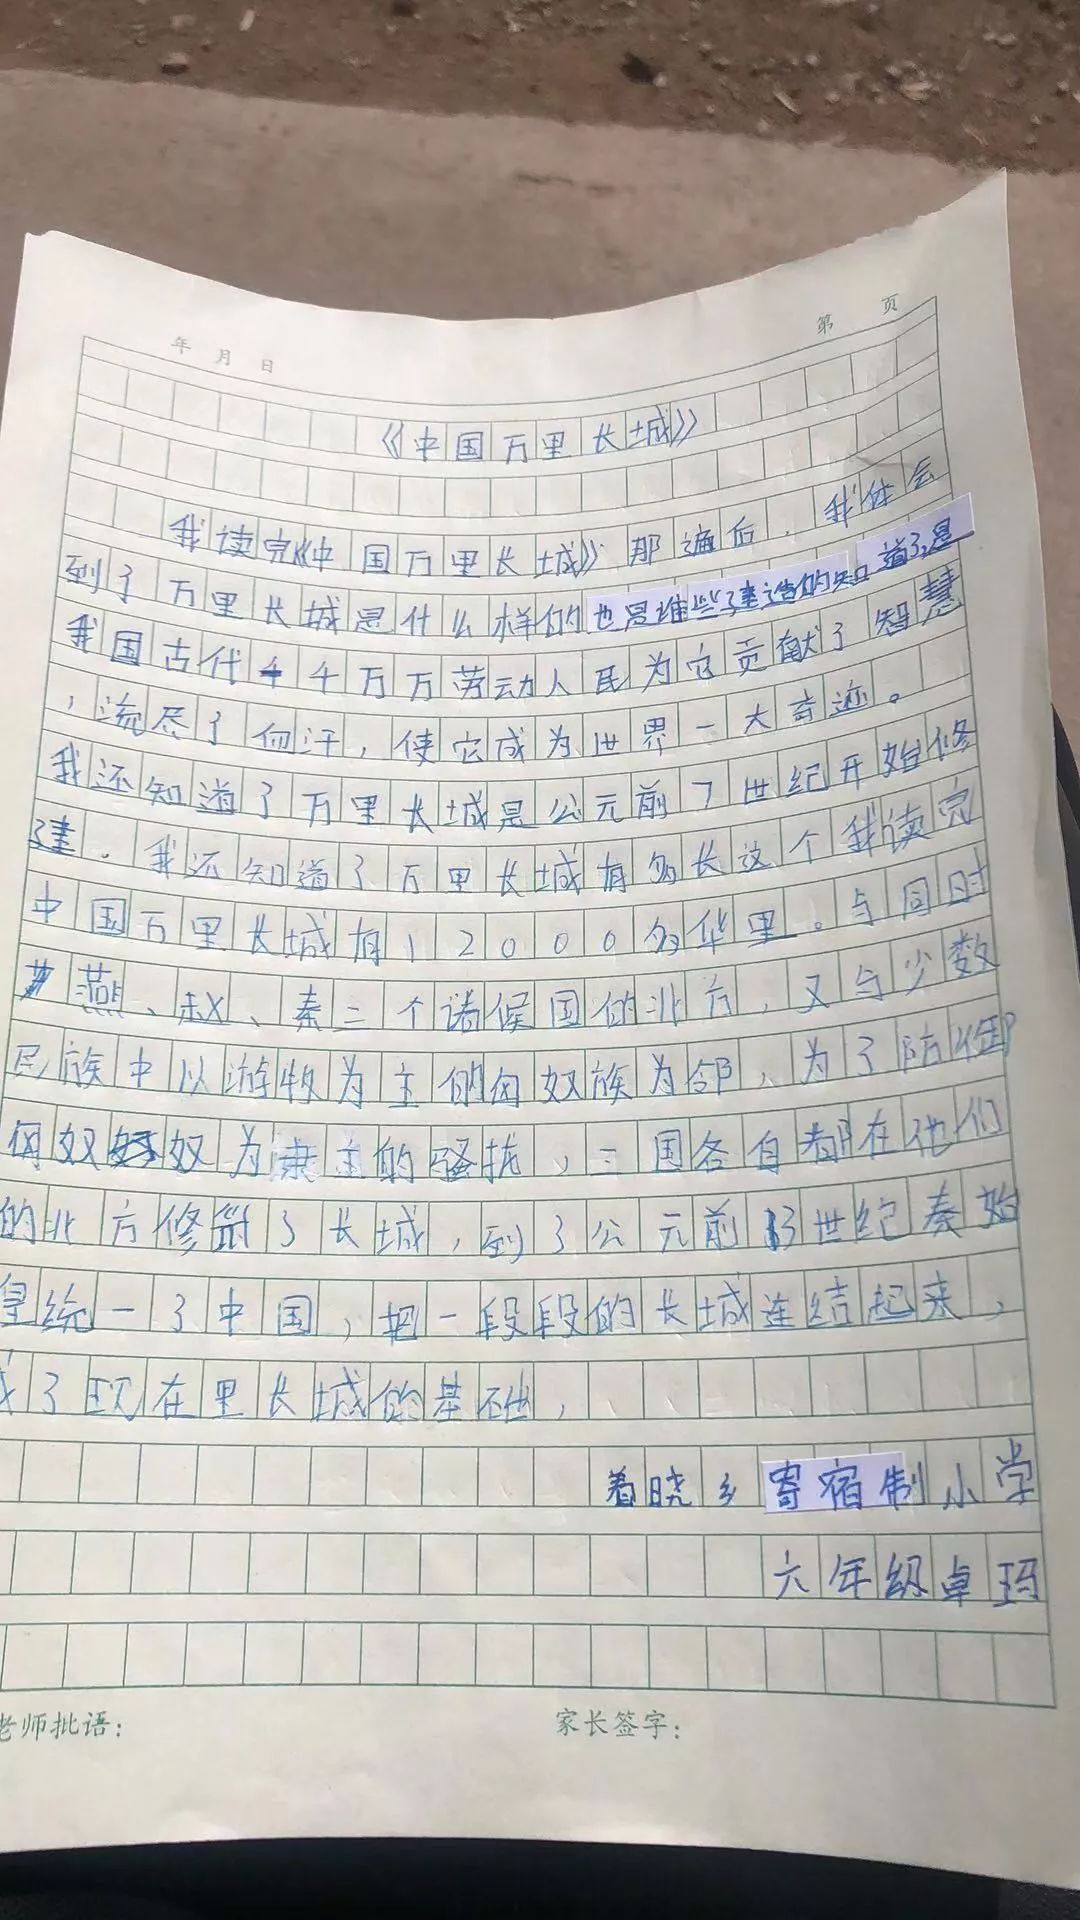 年 月 日
第 页
《中国万里长城》
我读完《中国万里长城》那遍后，我体会
到了万里长城是什么样的也是谁些建造的知道了,是
我国古代千千万万劳动人民为它贡献了智慧
，流尽了血汗，使它成为世界一大奇迹。
我还知道了万里长城是公元前7世纪开始修
建．我还知道了万里长城有多长这个我读完
中国万里长城有12000多华里。与同时
燕、赵、秦三个诸候国的北方，又与少数
民族中以游牧为主的匈奴族为邻，为了防御
匈奴奴为主的骚扰，三国各自都在他们
的北方修了长城，到了公元前3世纪秦始
皇统一了中国，把一段段的长城连结起来，
成了现在里长城的基础，
着晓乡寄宿制小学
六年级卓玛
老师批语：
家长签字：